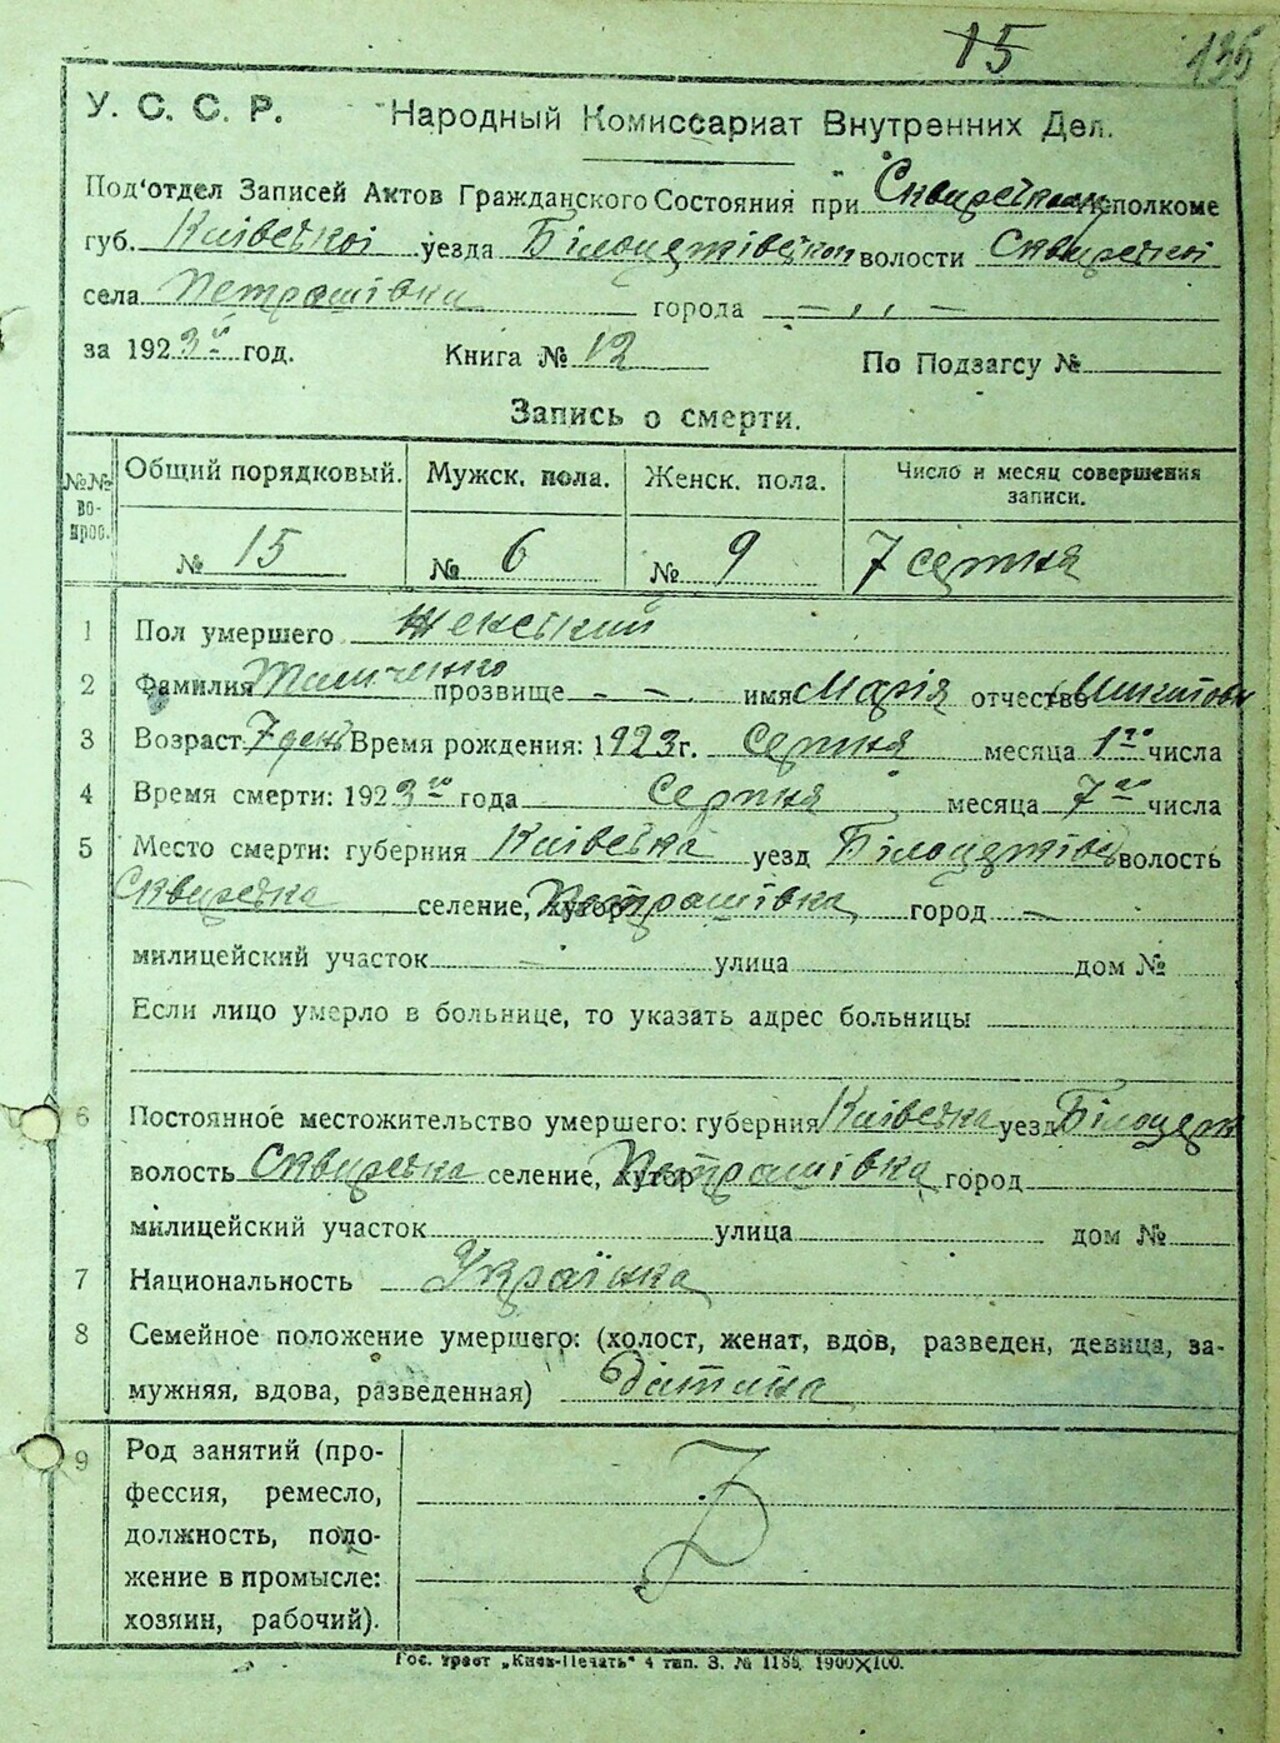 15 135
У. С. С. Р. Народный Комиссариат Внутренних Дел.
Под'отдел Записей Актов Гражданского Состояния при Сквирськім Исполкоме
губ. Київської уезда Білоцерківської волости Сквирської
села Петрашівки города — „ —
за 1923 го год. Книга № 12 По Подзагсу №
Запись о смерти.
№№ вопрос. Общий порядковый. Мужск. пола. Женск. пола. Число и месяц совершения записи.
№ 15 № 6 № 9 7 серпня
1 Пол умершего Женський
2 Фамилия прозвище — — имя Марія отчество
3 Возраст 7 день Время рождения: 1923 г. Серпня месяца 1го числа
4 Время смерти: 1923 го года Серпня месяца 7го числа
5 Место смерти: губерния Київська уезд Білоцерків волость
Сквирська селение, хутор Петрашівка город —
милицейский участок — улица дом №
Если лицо умерло в больнице, то указать адрес больницы
6 Постоянное местожительство умершего: губерния Київська уезд Білоцерк
волость Сквирська селение, хутор Петрашівка город
милицейский участок улица дом №
7 Национальность Українка
8 Семейное положение умершего: (холост, женат, вдов, разведен, девица, за-
мужняя, вдова, разведенная) дитина
9 Род занятий (про-
фессия, ремесло,
должность, поло-
жение в промысле:
хозяин, рабочий).
Гос. трест „Киев-Печать" 4 тип. З. № 1188. 1900X100.